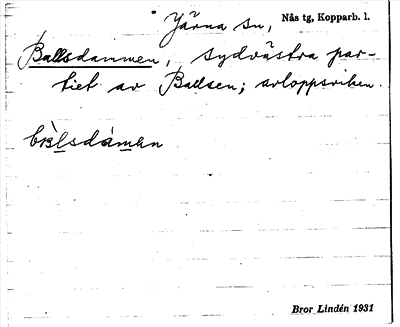 Järna sn, Nås tg, Kopparb. l.
Ballsdammen, sydvästra par-
tiet av Ballsen; avloppsviken.
Bror Lindén 1931